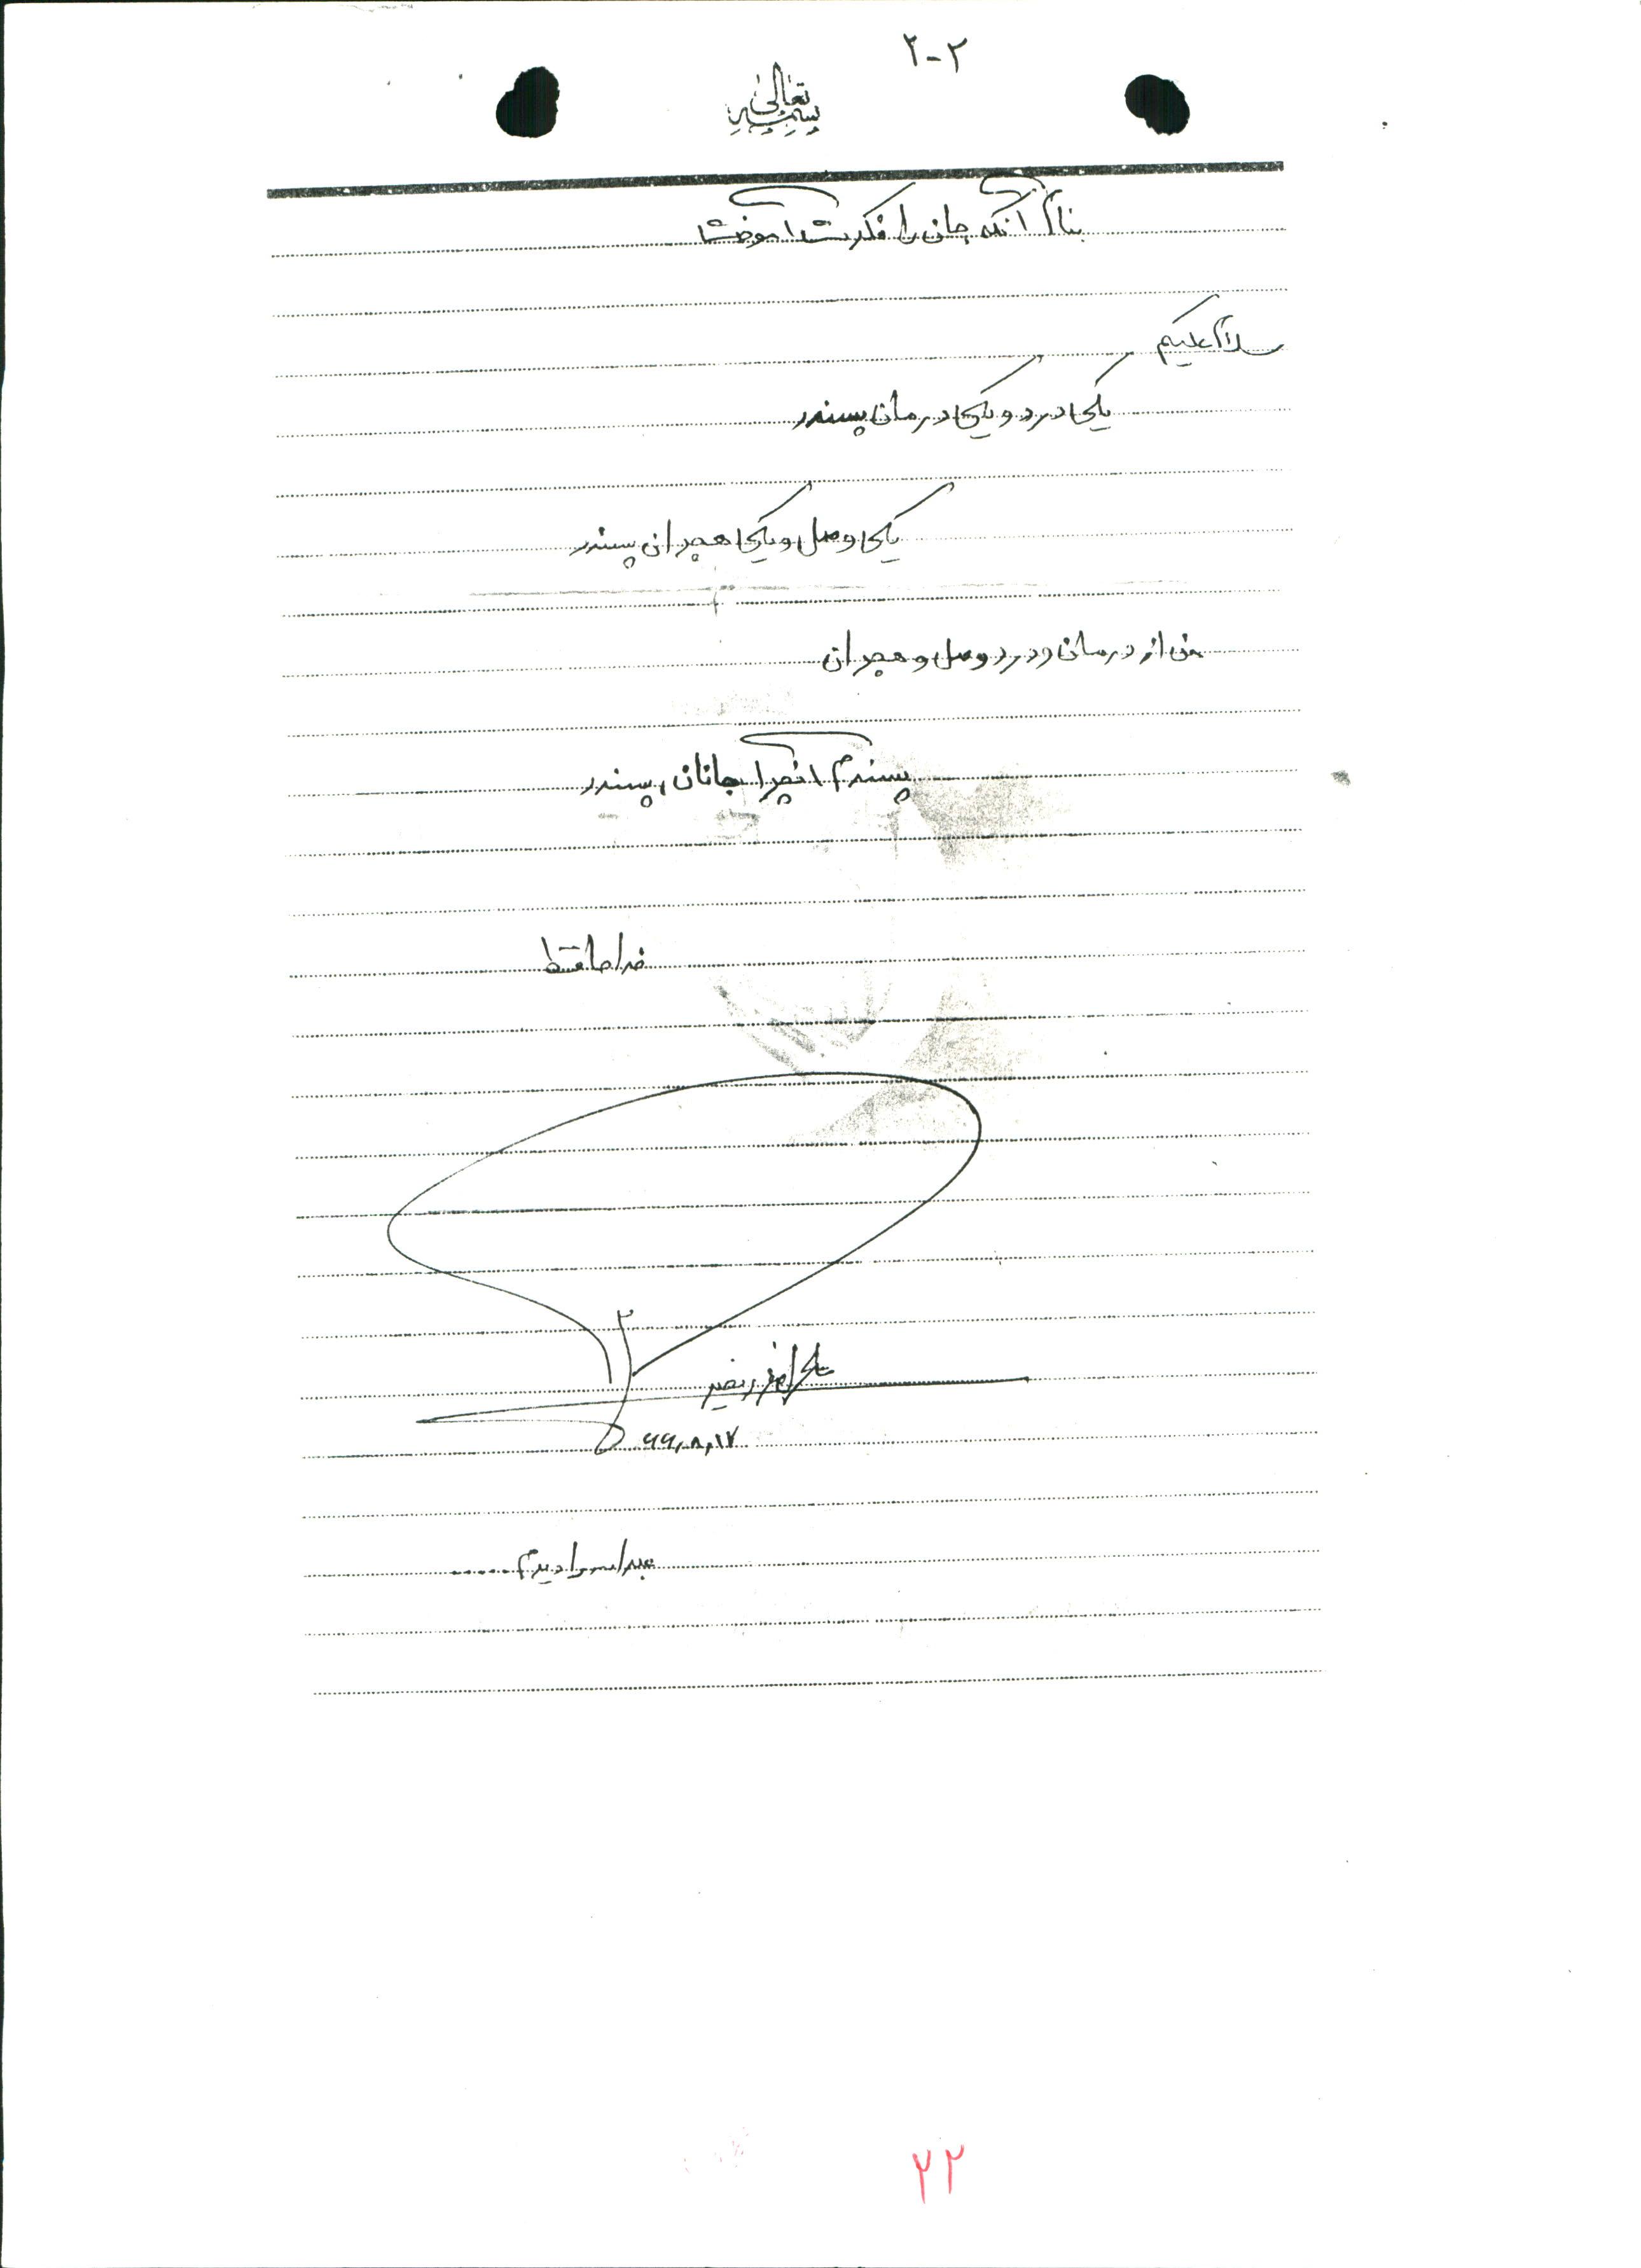 ۲-۲
بسمه تعالی
بنام آنکه جان را فکرت آموخت
سلام علیکم
یکی درد و یکی درمان پسندد
یکی وصل و یکی هجران پسندد
من از درمان و درد و وصل و هجران
پسندم آنچه را جانان پسندد
خداحافظ
علی اصغر
۶۶٫۸٫۱۷
دیدم .....
۲۲